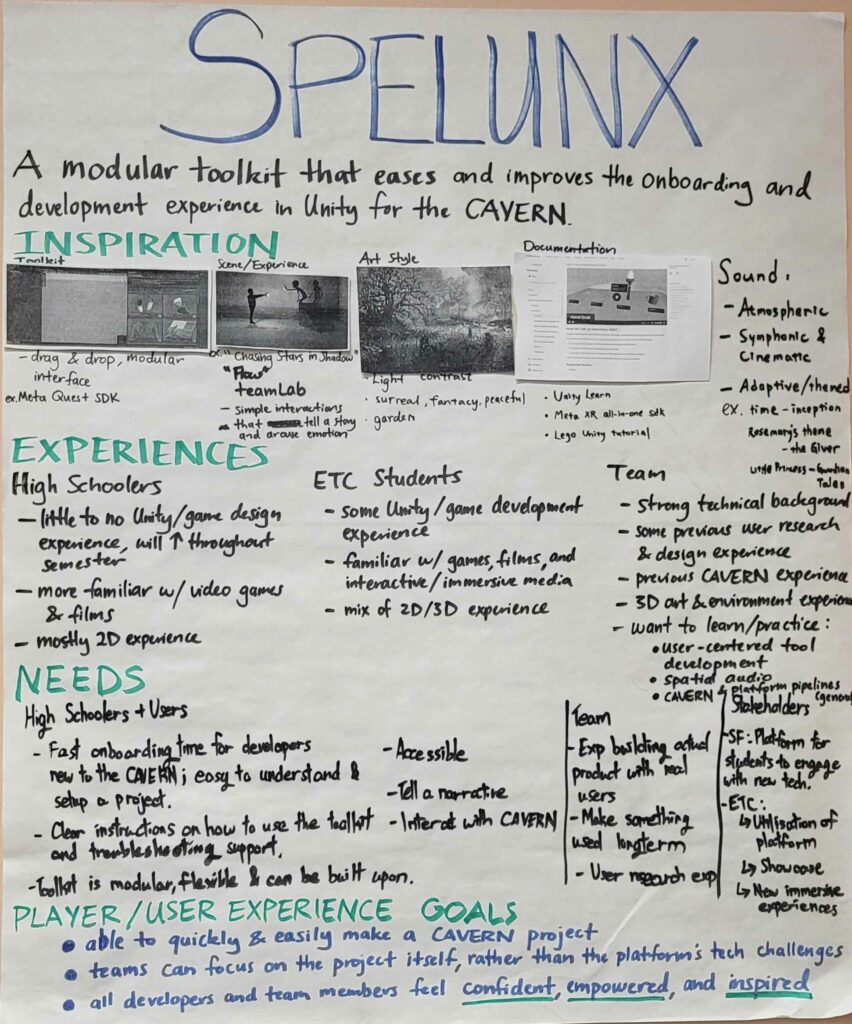 SPELUNX
A modular toolkit that eases and improves the onboarding and
development experience in Unity for the CAVERN.
INSPIRATION
Toolkit
- drag & drop, modular
interface
ex. Meta Quest SDK
Scene/Experience
ex. "Chasing Stars in Shadow"
"Flow"
teamLab
- simple interactions
that tell a story
and arouse emotion
Art Style
Light contrast
• surreal, fantacy, peaceful
• garden
Documentation
• Unity Learn
• Meta XR all-in-one sdk
• Lego Unity tutorial
Sound:
- Atmospheric
- Symphonic &
Cinematic
- Adaptive/themed
ex. time - inception
Rosemary's theme
- the Giver
Little Princess - Guardian
Tales
EXPERIENCES
High Schoolers
- little to no Unity/game design
experience, will ↑ throughout
semester
- more familiar w/ video games
& films
- mostly 2D experience
ETC Students
- some Unity/game development
experience
- familiar w/ games, films, and
interactive/immersive media
- mix of 2D/3D experience
Team
- strong technical background
- some previous user research
& design experience
- previous CAVERN experience
- 3D art & environment experience
- want to learn/practice:
• user-centered tool
development
• spatial audio
• CAVERN & platform pipelines
(general
NEEDS
High Schoolers + Users
- Fast onboarding time for developers
new to the CAVERN; easy to understand &
setup a project.
- Clear instructions on how to use the toolkit
and troubleshooting support.
- Toolkit is modular, flexible & can be built upon.
- Accessible
- Tell a narrative
- Interact with CAVERN
Team
- Exp building actual
product with real
users
- Make something
used longterm
- User research exp
Stakeholders
- SF: Platform for
students to engage
with new tech.
- ETC:
↳ Utilisation of
platform
↳ Showcase
↳ New immersive
experiences
PLAYER/USER EXPERIENCE GOALS
• able to quickly & easily make a CAVERN project
• teams can focus on the project itself, rather than the platform's tech challenges
• all developers and team members feel confident, empowered, and inspired